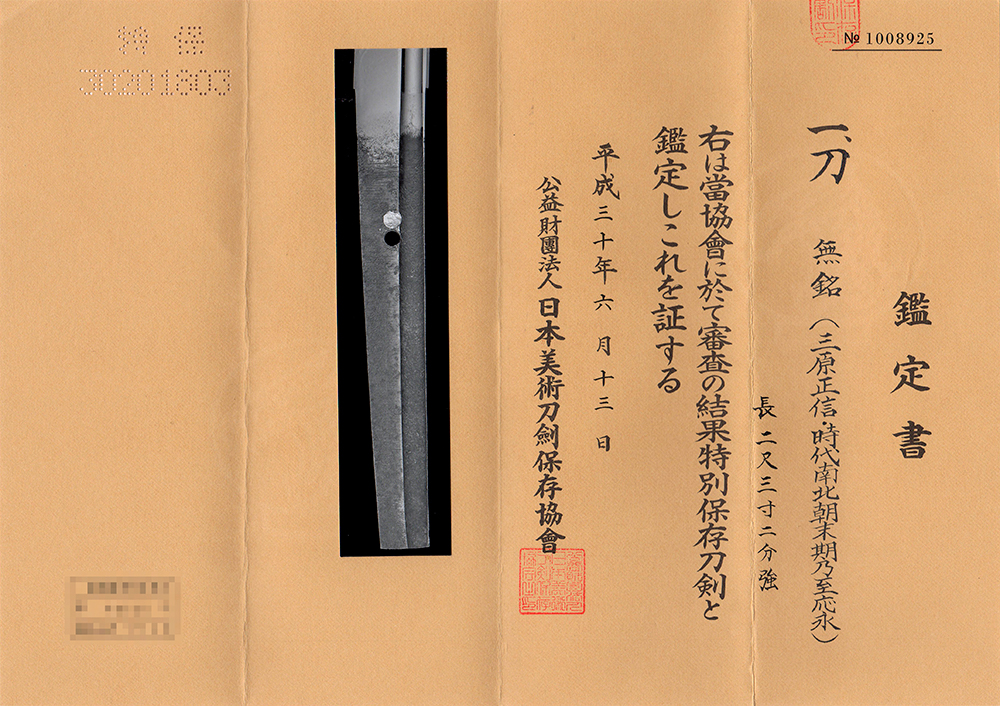 № 1008925
鑑定書
一、刀 無銘（三原正信・時代南北朝末期乃至応永）
長二尺三寸二分強
右は當協會に於て審査の結果特別保存刀剣と
鑑定しこれを証する
平成三十年六月十三日
公益財團法人 日本美術刀劍保存協會
特保
30201803